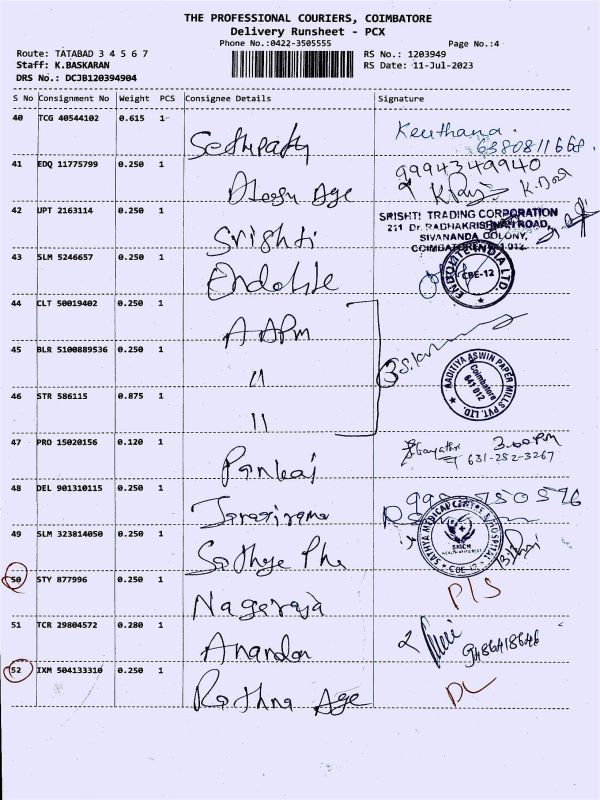 THE PROFESSIONAL COURIERS, COIMBATORE
Delivery Runsheet - PCX
Phone No.:0422-3505555
Page No.:4
Route: TATABAD 3 4 5 6 7
RS No.: 1203949
Staff: K.BASKARAN
RS Date: 11-Jul-2023
DRS No.: DCJB120394904
S No Consignment No Weight PCS Consignee Details Signature
40 TCG 40544102 0.615 1
Sethupathy
6380811668.
41 EDQ 11775799 0.250 1
9994349940
Age
42 UPT 2163114 0.250 1
Srishti
SRISHTI TRADING CORPORATION
211 Dr. RADHAKRISHNAN ROAD,
SIVANANDA COLONY,
43 SLM 5246657 0.250 1
Endolite
ENDOLITE INDIA LTD.
CBE-12
44 CLT 50019402 0.250 1
AAPM
45 BLR 5100889536 0.250 1
11
AADITIYA ASWIN PAPER MILLS PVT. LTD.
Coimbatore
641 012
46 STR 586115 0.875 1
11
47 PRO 15020156 0.120 1
Pankaj
Gayathri 3.00 PM
631-252-3267
48 DEL 901310115 0.250 1
49 SLM 323814050 0.250 1
Sathya Pha
SATHYA MEDICAL CENTRE & HOSPITAL
SMCH
CBE-12
50 STY 877996 0.250 1
Nagaraja
P/S
51 TCR 29804572 0.280 1
Anandan
9486418646
52 IXM 504133310 0.250 1
Rathna Age
DL